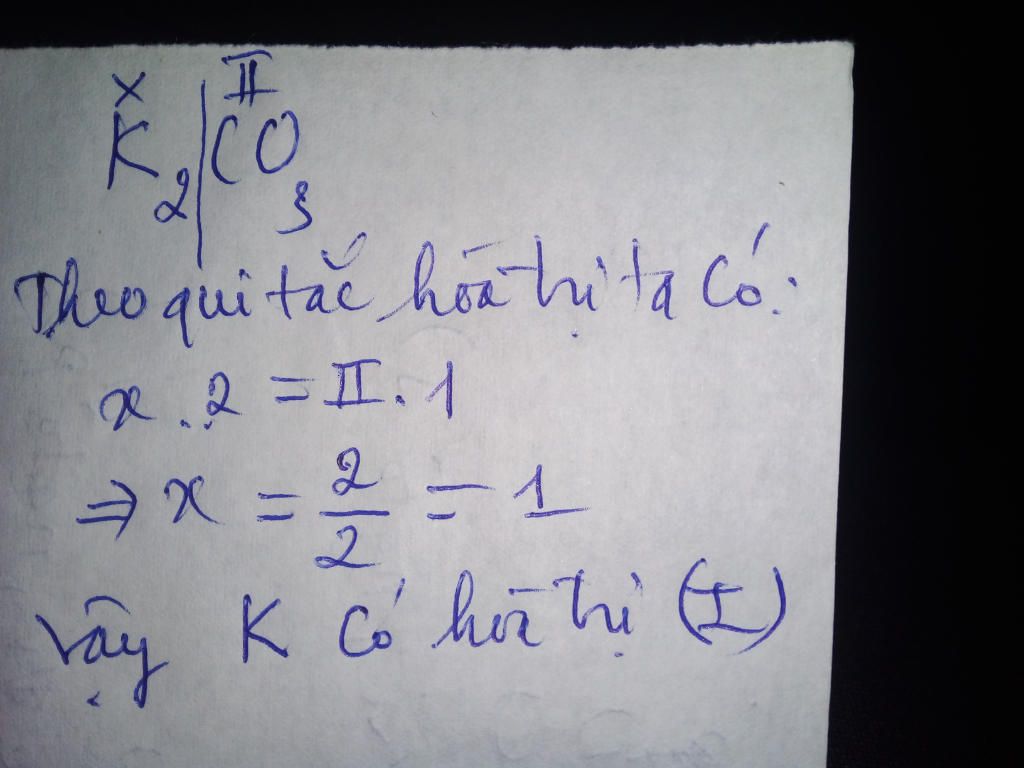 x II
K₂|CO₃
Theo qui tắc hóa trị ta có:
x . 2 = II . 1
⇒ x = 2/2 = 1
Vậy K có hóa trị (I)